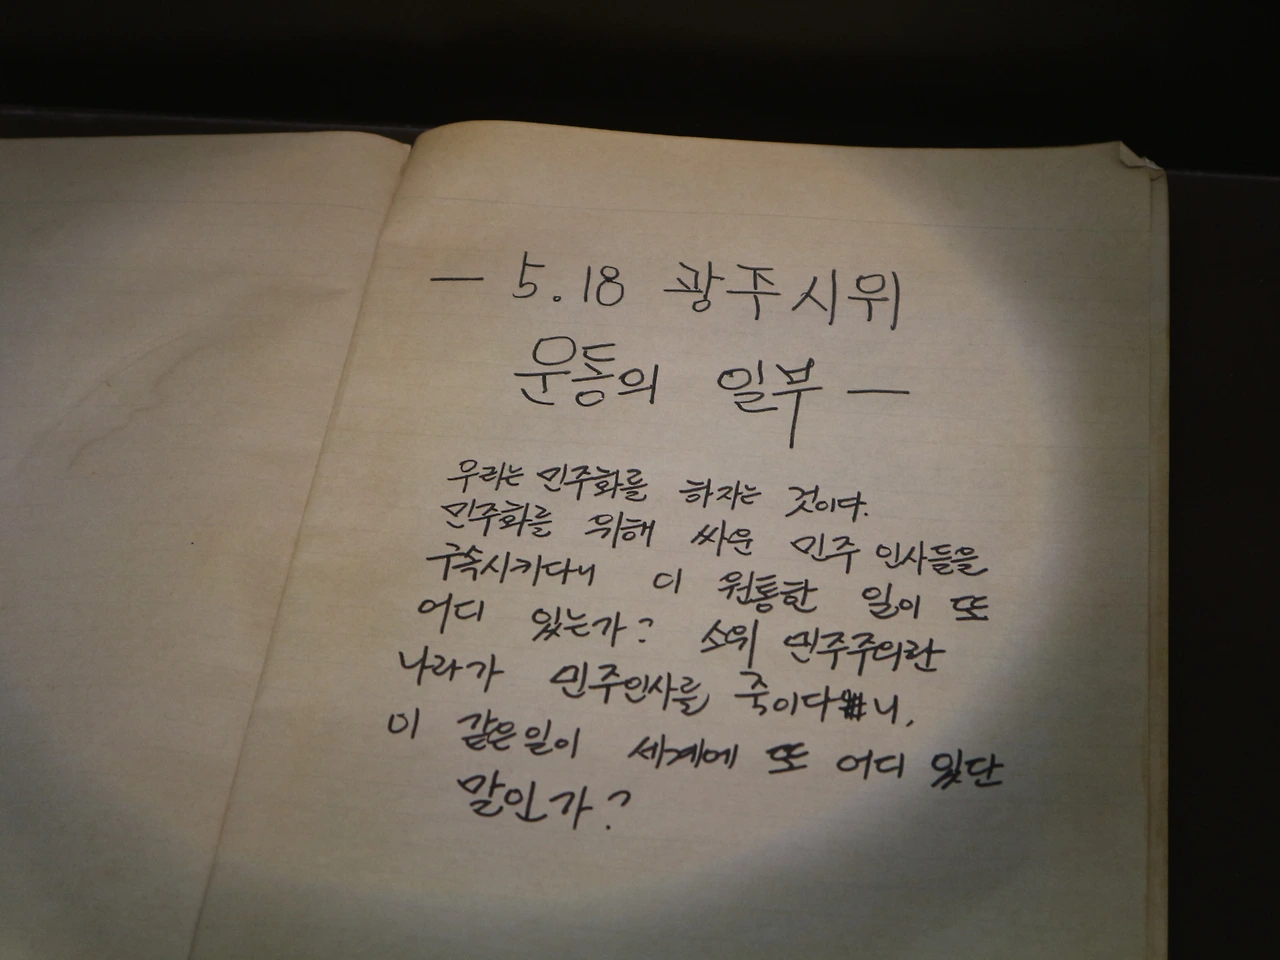 — 5.18 광주시위
운동의 일부 —
우리는 민주화를 하자는 것이다.
민주화를 위해 싸운 민주 인사들을
구속시키다니 이 원통한 일이 또
어디 있는가? 소위 민주주의란
나라가 민주인사를 죽이다니,
이 같은일이 세계에 또 어디 있단
말인가?